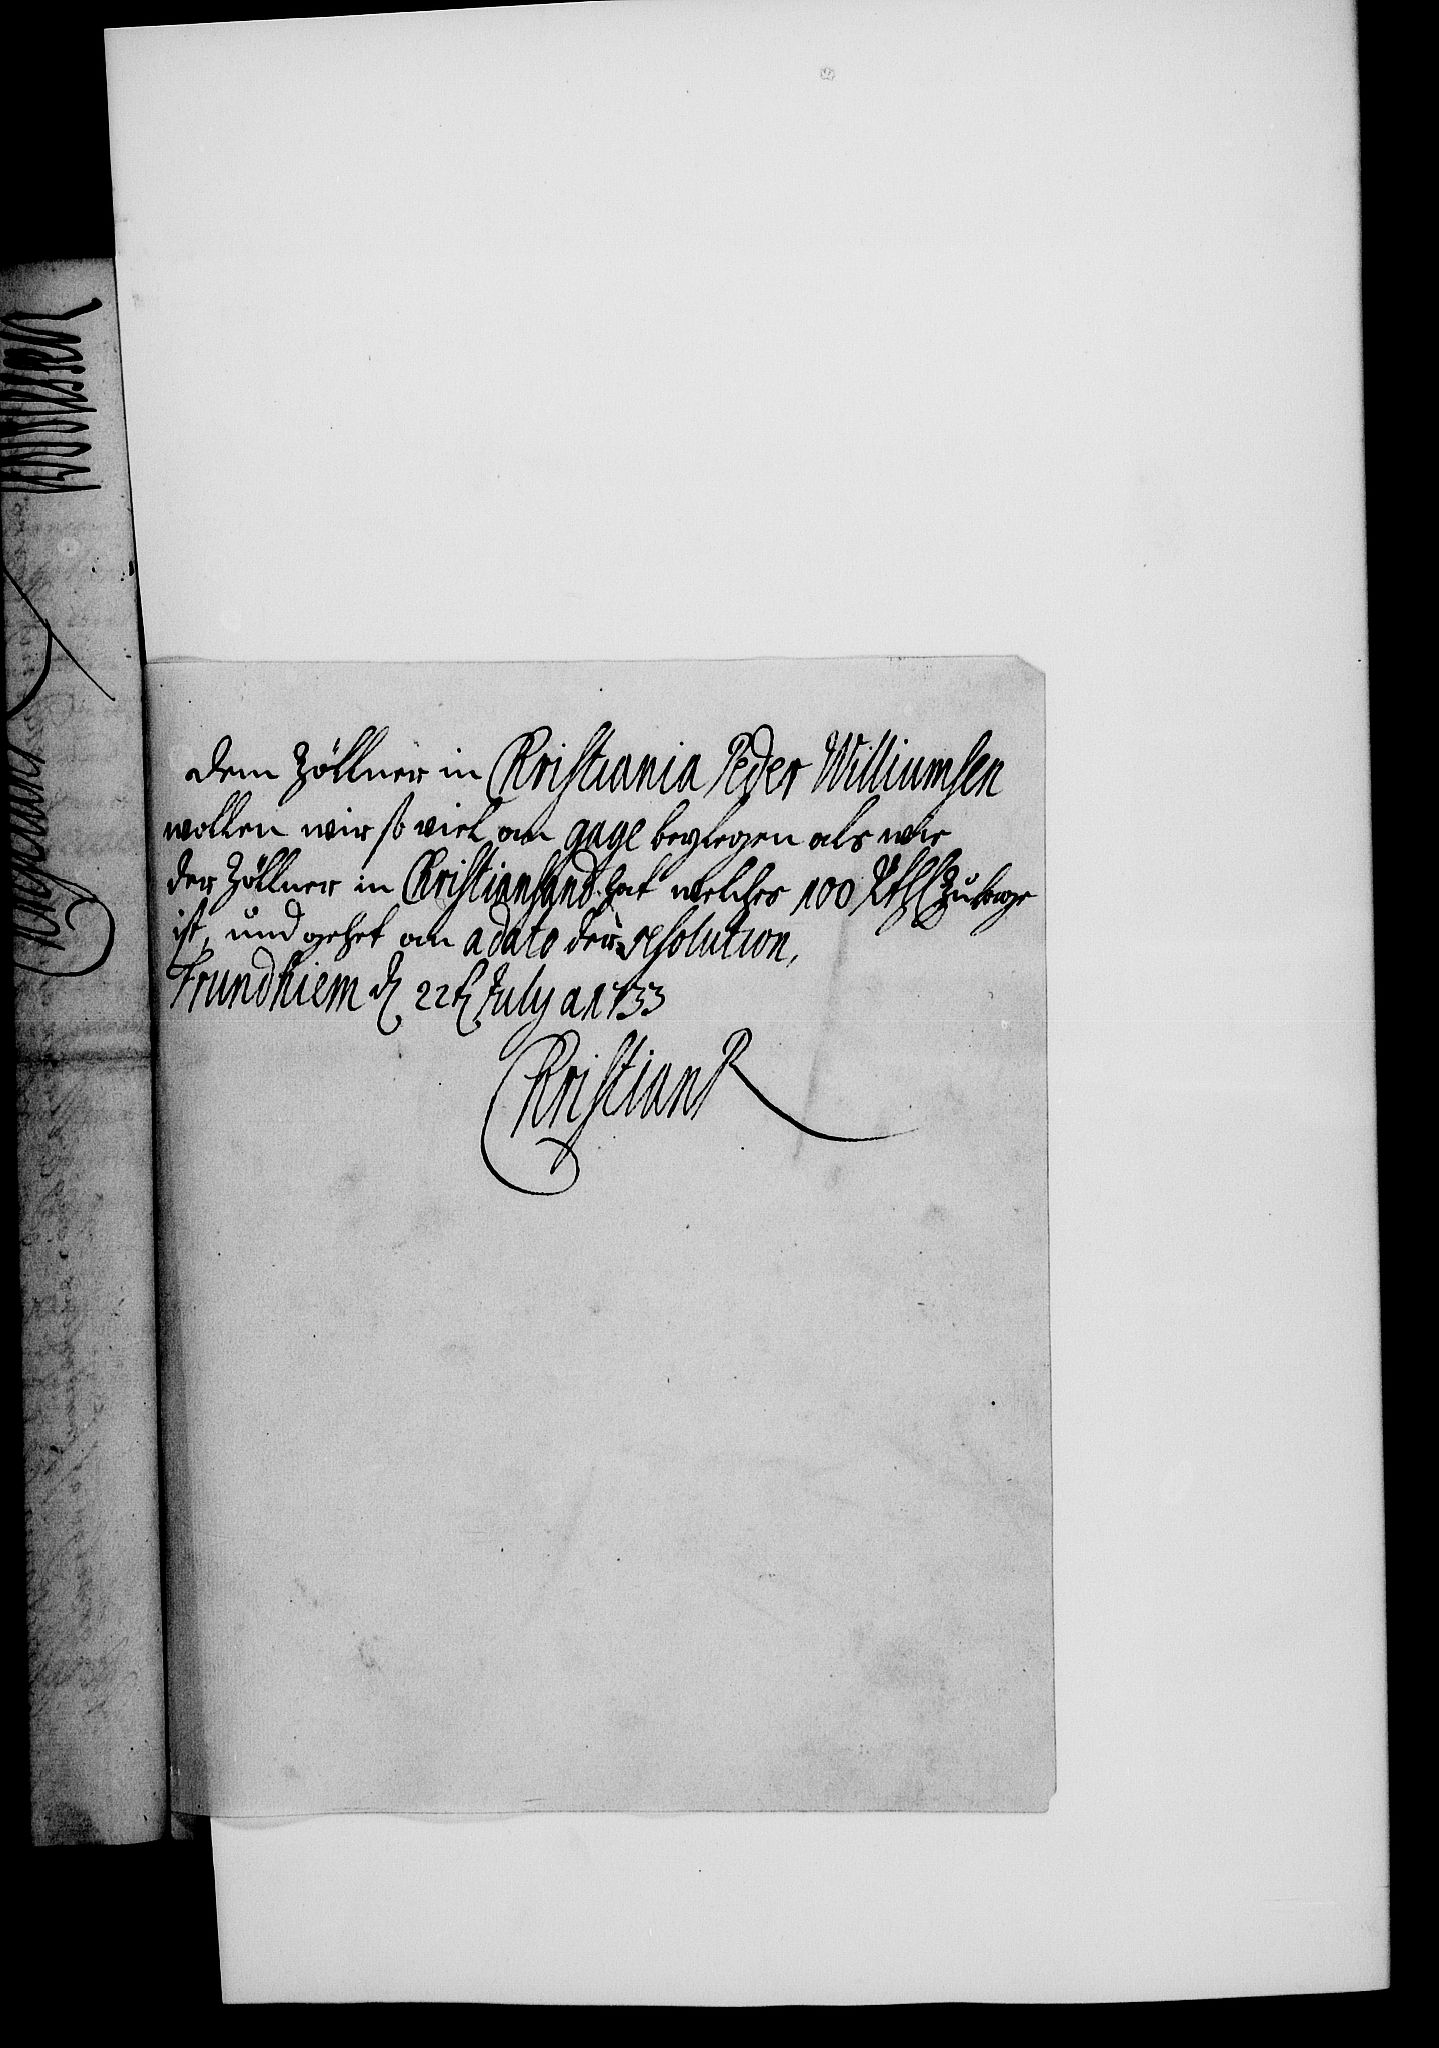 dem Zöllner in Christiania Peder Williumsen
wollen wir so viel an gage beylegen als wie
der Zöllner in Christiansand hat welches 100 Rthl Zulage
ist, und gehet an a dato der resolution,
Trundhiem d 22t July a 1733
Christian R